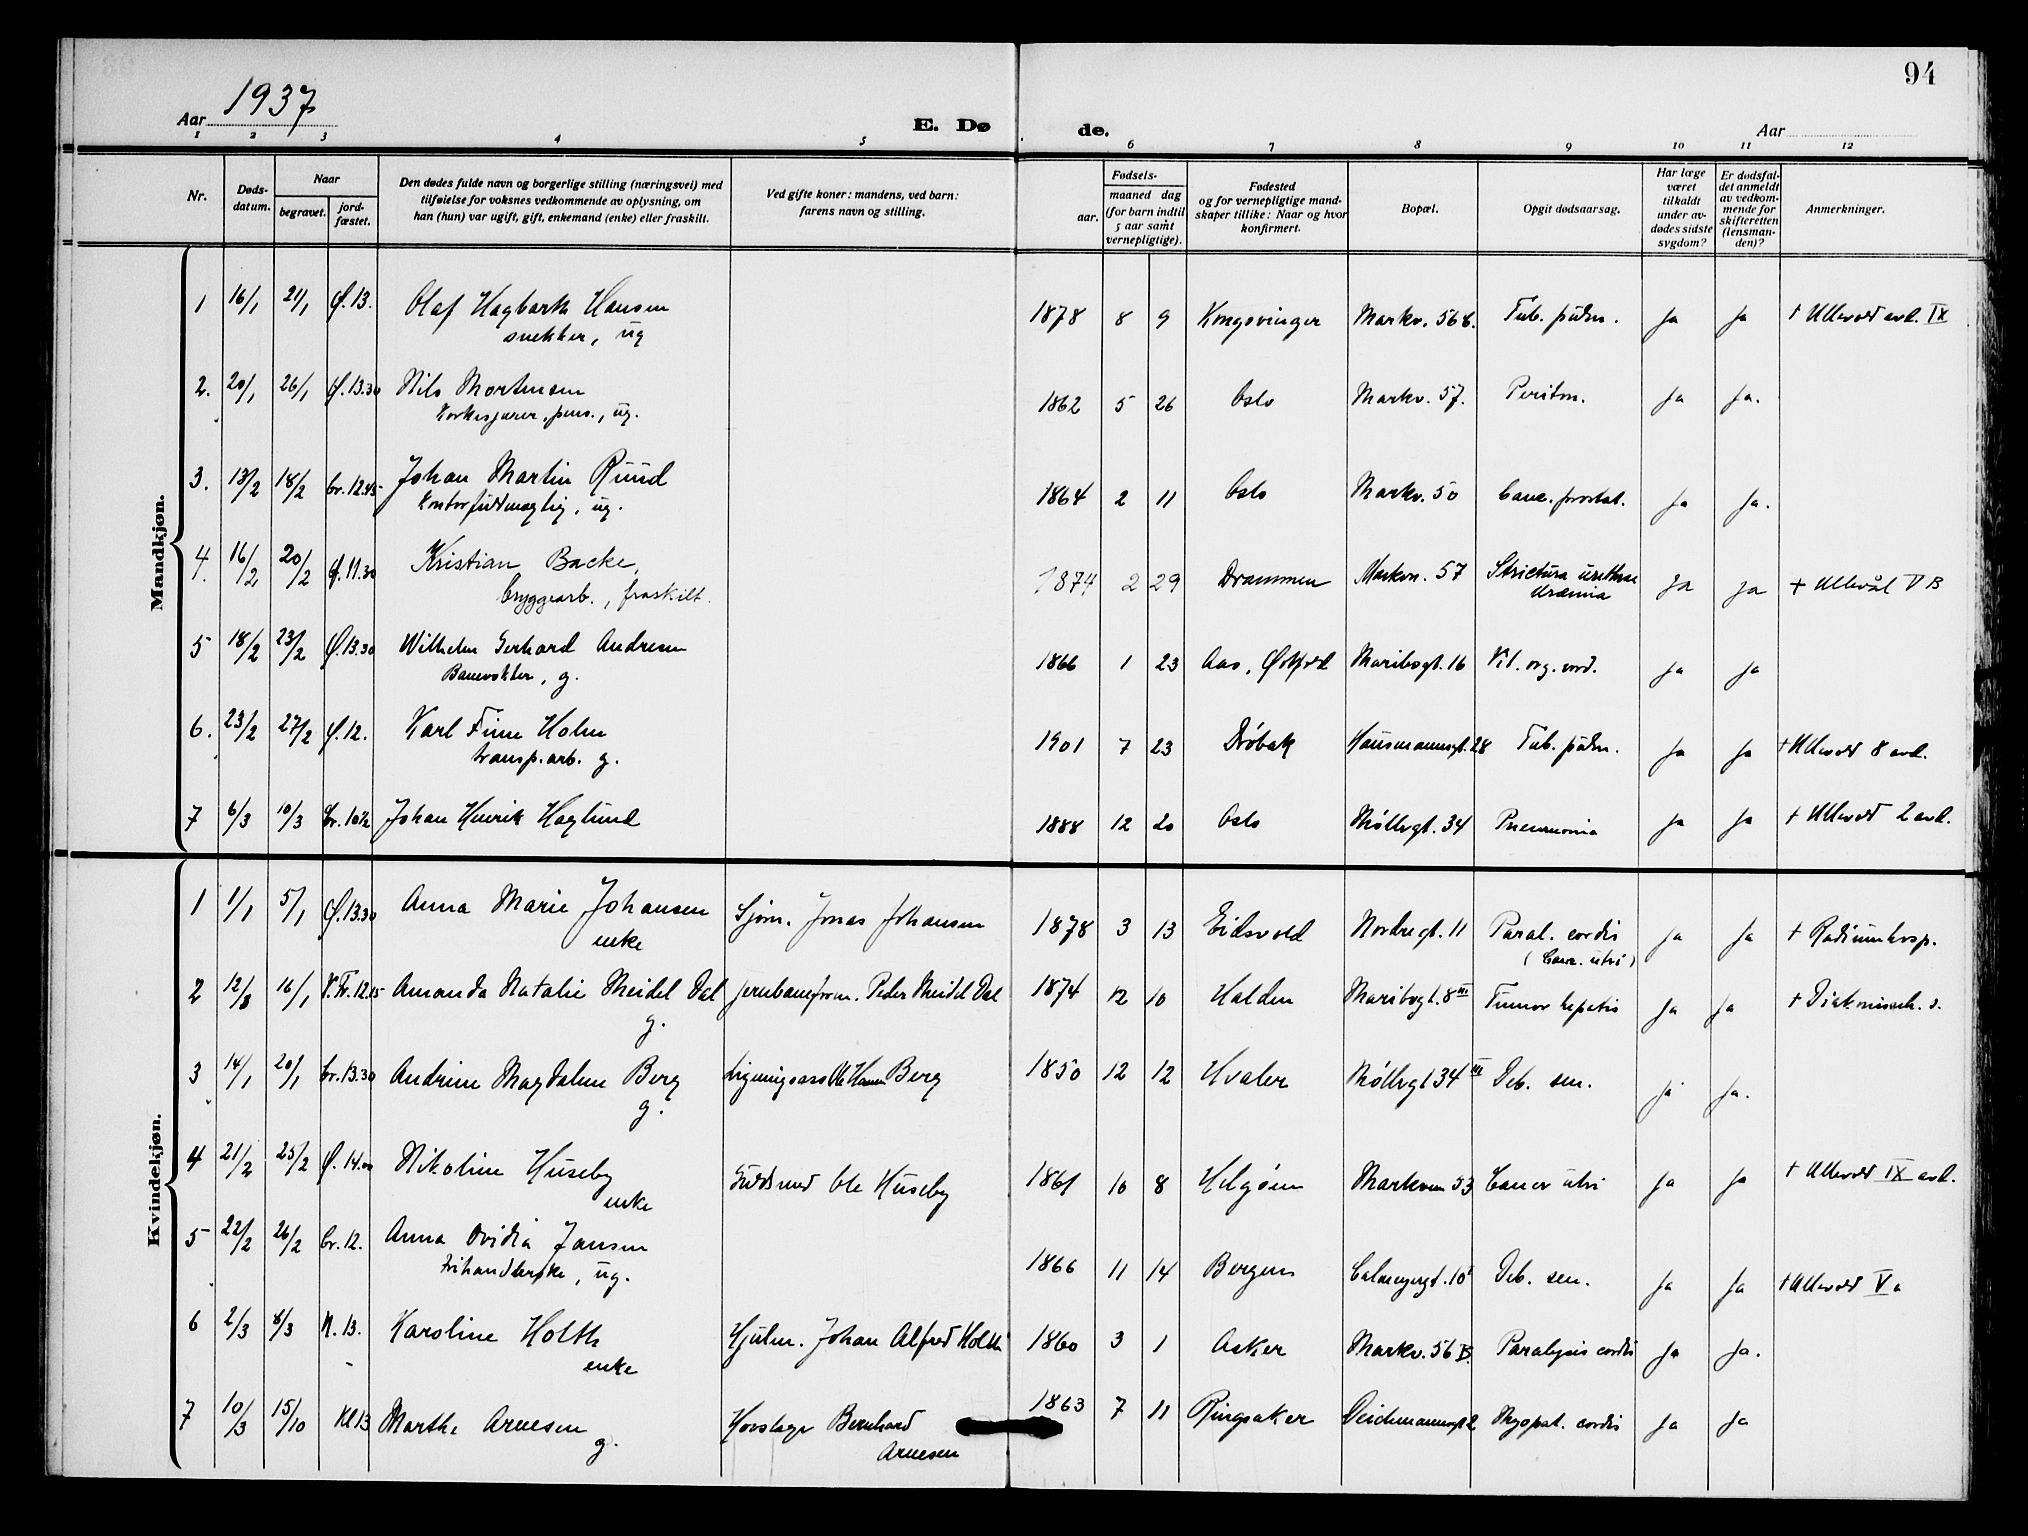 94
Aar 1937
E. Dø
de.
Aar
1 2 3 4 5 6 7 8 9 10 11 12
Nr.
Døds-
datum.
Naar
begravet.
jord-
fæstet.
Den dødes fulde navn og borgerlige stilling (næringsvei) med
tilføielse for voksnes vedkommende av oplysning, om
han (hun) var ugift, gift, enkemand (enke) eller fraskilt.
Ved gifte koner: mandens, ved barn:
farens navn og stilling.
Fødsels-
aar.
maaned dag
(for barn indtil
5 aar samt
vernepligtige).
Fødested
og for vernepligtige mand-
skaper tillike: Naar og hvor
konfirmert.
Bopæl.
Opgit dødsaarsag.
Har læge
været
tilkaldt
under av-
dødes sidste
sygdom?
Er dødsfal-
det anmeldt
av vedkom-
mende for
skifteretten
(lensman-
den)?
Anmerkninger.
Mandkjøn.
1 16/1 21/1 Ø. 13. Olaf Hagbarth Hansen 1878 8 9 Kongsvinger Markv. 56 b. Tub. pulm. Ja Ja + Ullevål avd. IX
snekker, ug
2. 20/1 26/1 Ø. 13.30 Nils Mortensen 1862 5 26 Oslo Markv. 57. Periton. Ja Ja.
pens., ug.
3. 13/2 18/2 Cr. 12.45 Johan Martin Ruud 1864 2 11 Oslo Markv. 50 Canc. prostat. Ja Ja.
Kontorfuldmægtig, ug.
4. 16/2 20/2 Ø. 11.30 Kristian Backe, 1874 2 29 Drammen Markvn. 57 Strictura urethrae Ja Ja + Ullevål V B
bryggearb., fraskilt. Uræmia
5 18/2 23/2 Ø. 13.30 Wilhelm Gerhard Andresen 1866 1 23 Aas, Østfold Maribogt. 16 Vit. org. cord. Ja Ja
Banevokter, g.
6. 23/2 27/2 Ø. 12. Karl Finn Holm 1901 7 23 Drøbak Hausmannsgt. 28 Tub. pulm. Ja Ja + Ullevål 8 avd.
transp.arb. g.
7 6/3 10/3 Cr. 10½ Johan Henrik Haglund 1888 12 20 Oslo Møllergt. 34 Pneumonia Ja Ja + Ullevål 2 avd.
Kvindekjøn.
1 1/1 5/1 Ø. 13.30 Anna Marie Johansen Sjøm. Jonas Johansen 1878 3 13 Eidsvold Nordregt. 11 Paral. cordis Ja Ja + Radiumhosp.
enke (Canc. utri)
2 12/8 16/1 V. Fr. 12.15 Amanda Natalie Meidel Dal jernbaneform. Peder Meidel Dal 1874 12 10 Halden Maribogt. 8 III Tumor hepatis Ja Ja + Diakonisseh. s.
g.
3 14/1 20/1 Cr. 13.30 Andrine Magdalene Berg Ole Hansen Berg 1850 12 12 Hvaler Møllergt 34 III Deb. sen. ja Ja.
g.
4 21/2 25/2 Ø. 14.00 Nikoline Huseby Guldsmed Ole Huseby 1861 10 8 Helgøen Markveien 53 Cancer utri Ja Ja + Ullevål IX avd.
enke
5 22/2 26/2 Cr. 12. Anna Ovidia Jansen 1866 11 14 Bergen Calmeyergt. 10 I Deb. sen. Ja Ja + Ullevål V a
Frihandlerske, ug.
6 2/3 8/3 N. 13. Karoline Holth Hjulm. Johan Alfred Holth 1860 3 1 Asker Markv. 56 B. Paralysis cordis Ja Ja.
enke
7 10/3 15/10 Kl 13 Marthe Arnesen Hovslager Bernhard 1863 7 11 Ringsaker Deichmannsgt 2 Myopat. cordis Ja Ja
g. Arnesen